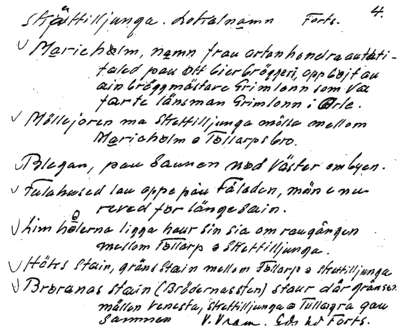 Skättilljunga. Lokalnamn Forts. 4.
Marieholm, namn frau artonhondraautåti-
taled pau ått bierbröggeri, opp böjt au
ain bröggmästare Grimlonn som va
farte länsman Grimlonn i Örle.
Möllejoren ma Skettilljunga mölla mellom
Marieholm o Tollarpsbro.
Blegan, pau Saunen nod Väster om byen.
Falahused lau oppe pau Fåladen, män e nu
reved for länge sain.
Lim hålerna ligga haur sin sia om raugången
mellom Tollarp o Skettilljunga.
Höks Stain, gräns Stain mellom Tollarp o Skettilljunga
Broranas Stain (Brödernassten) staur där gränsen
mellan Venesta, Skettilljunga o Tullagra gau
Sammen V. Vram. Forts.